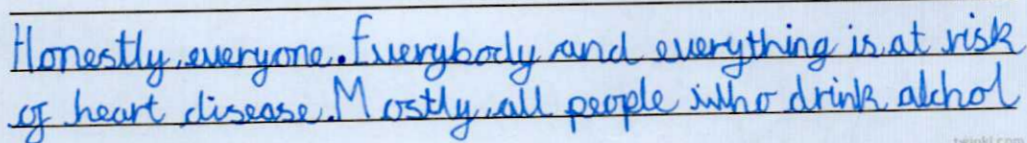 Honestly, everyone. Everybody and everything is at risk
of heart disease. Mostly all people who drink alchol
twinkl.com